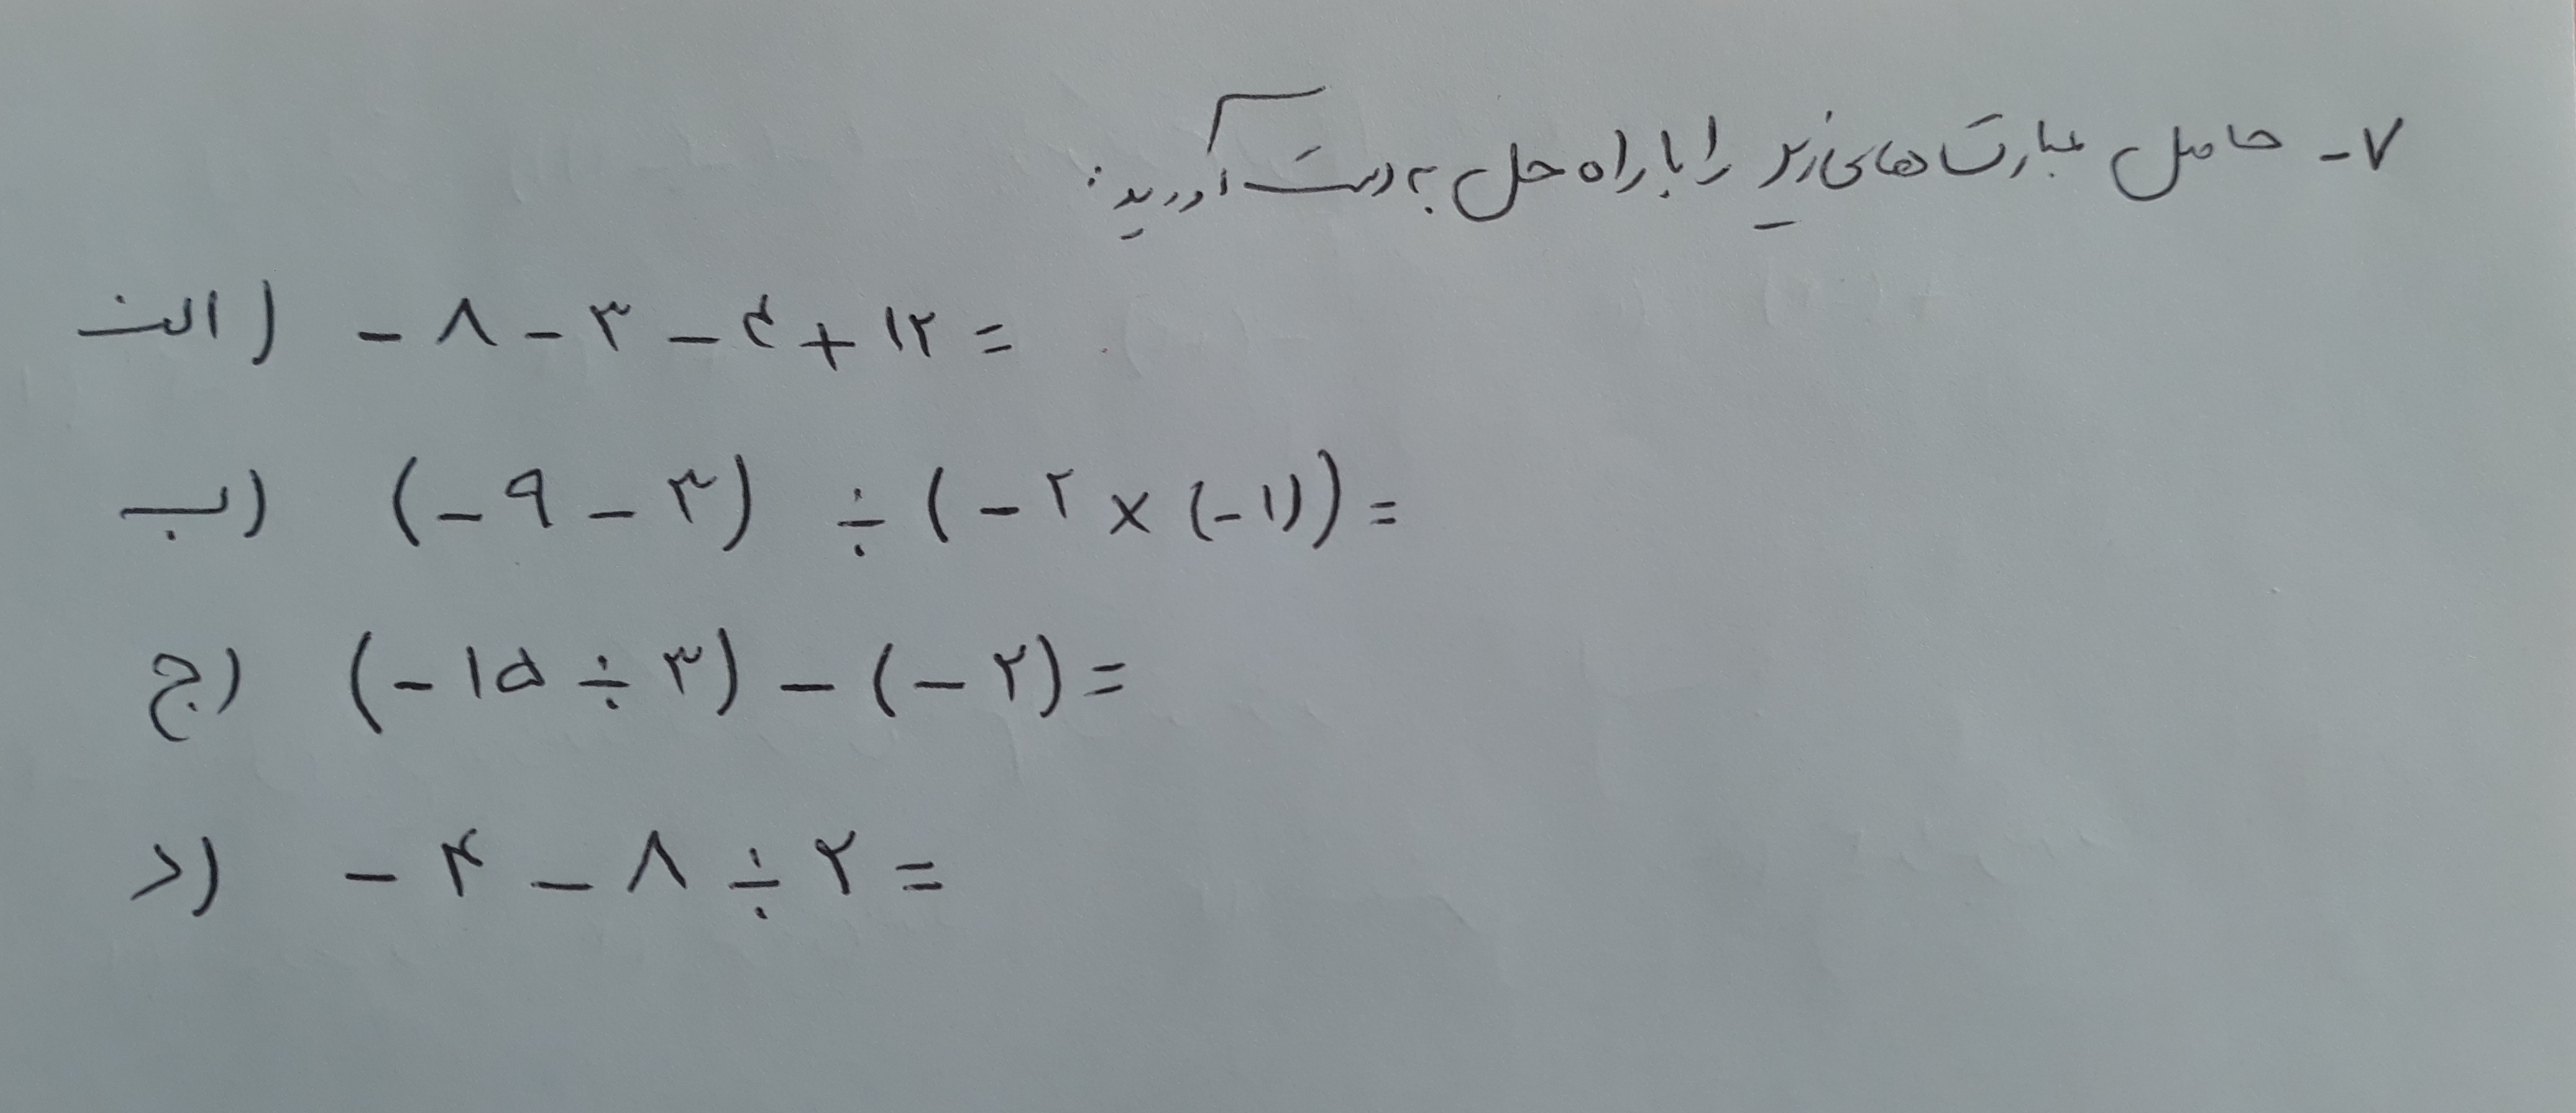 ۷- حاصل عبارت های زیر را با راه حل به دست آورید:
الف) - ۸ - ۳ - ۴ + ۱۲ =
ب) (- ۹ - ۳) ÷ (- ۲ × (- ۱)) =
ج) (- ۱۵ ÷ ۳) - (- ۲) =
د) - ۴ - ۸ ÷ ۲ =